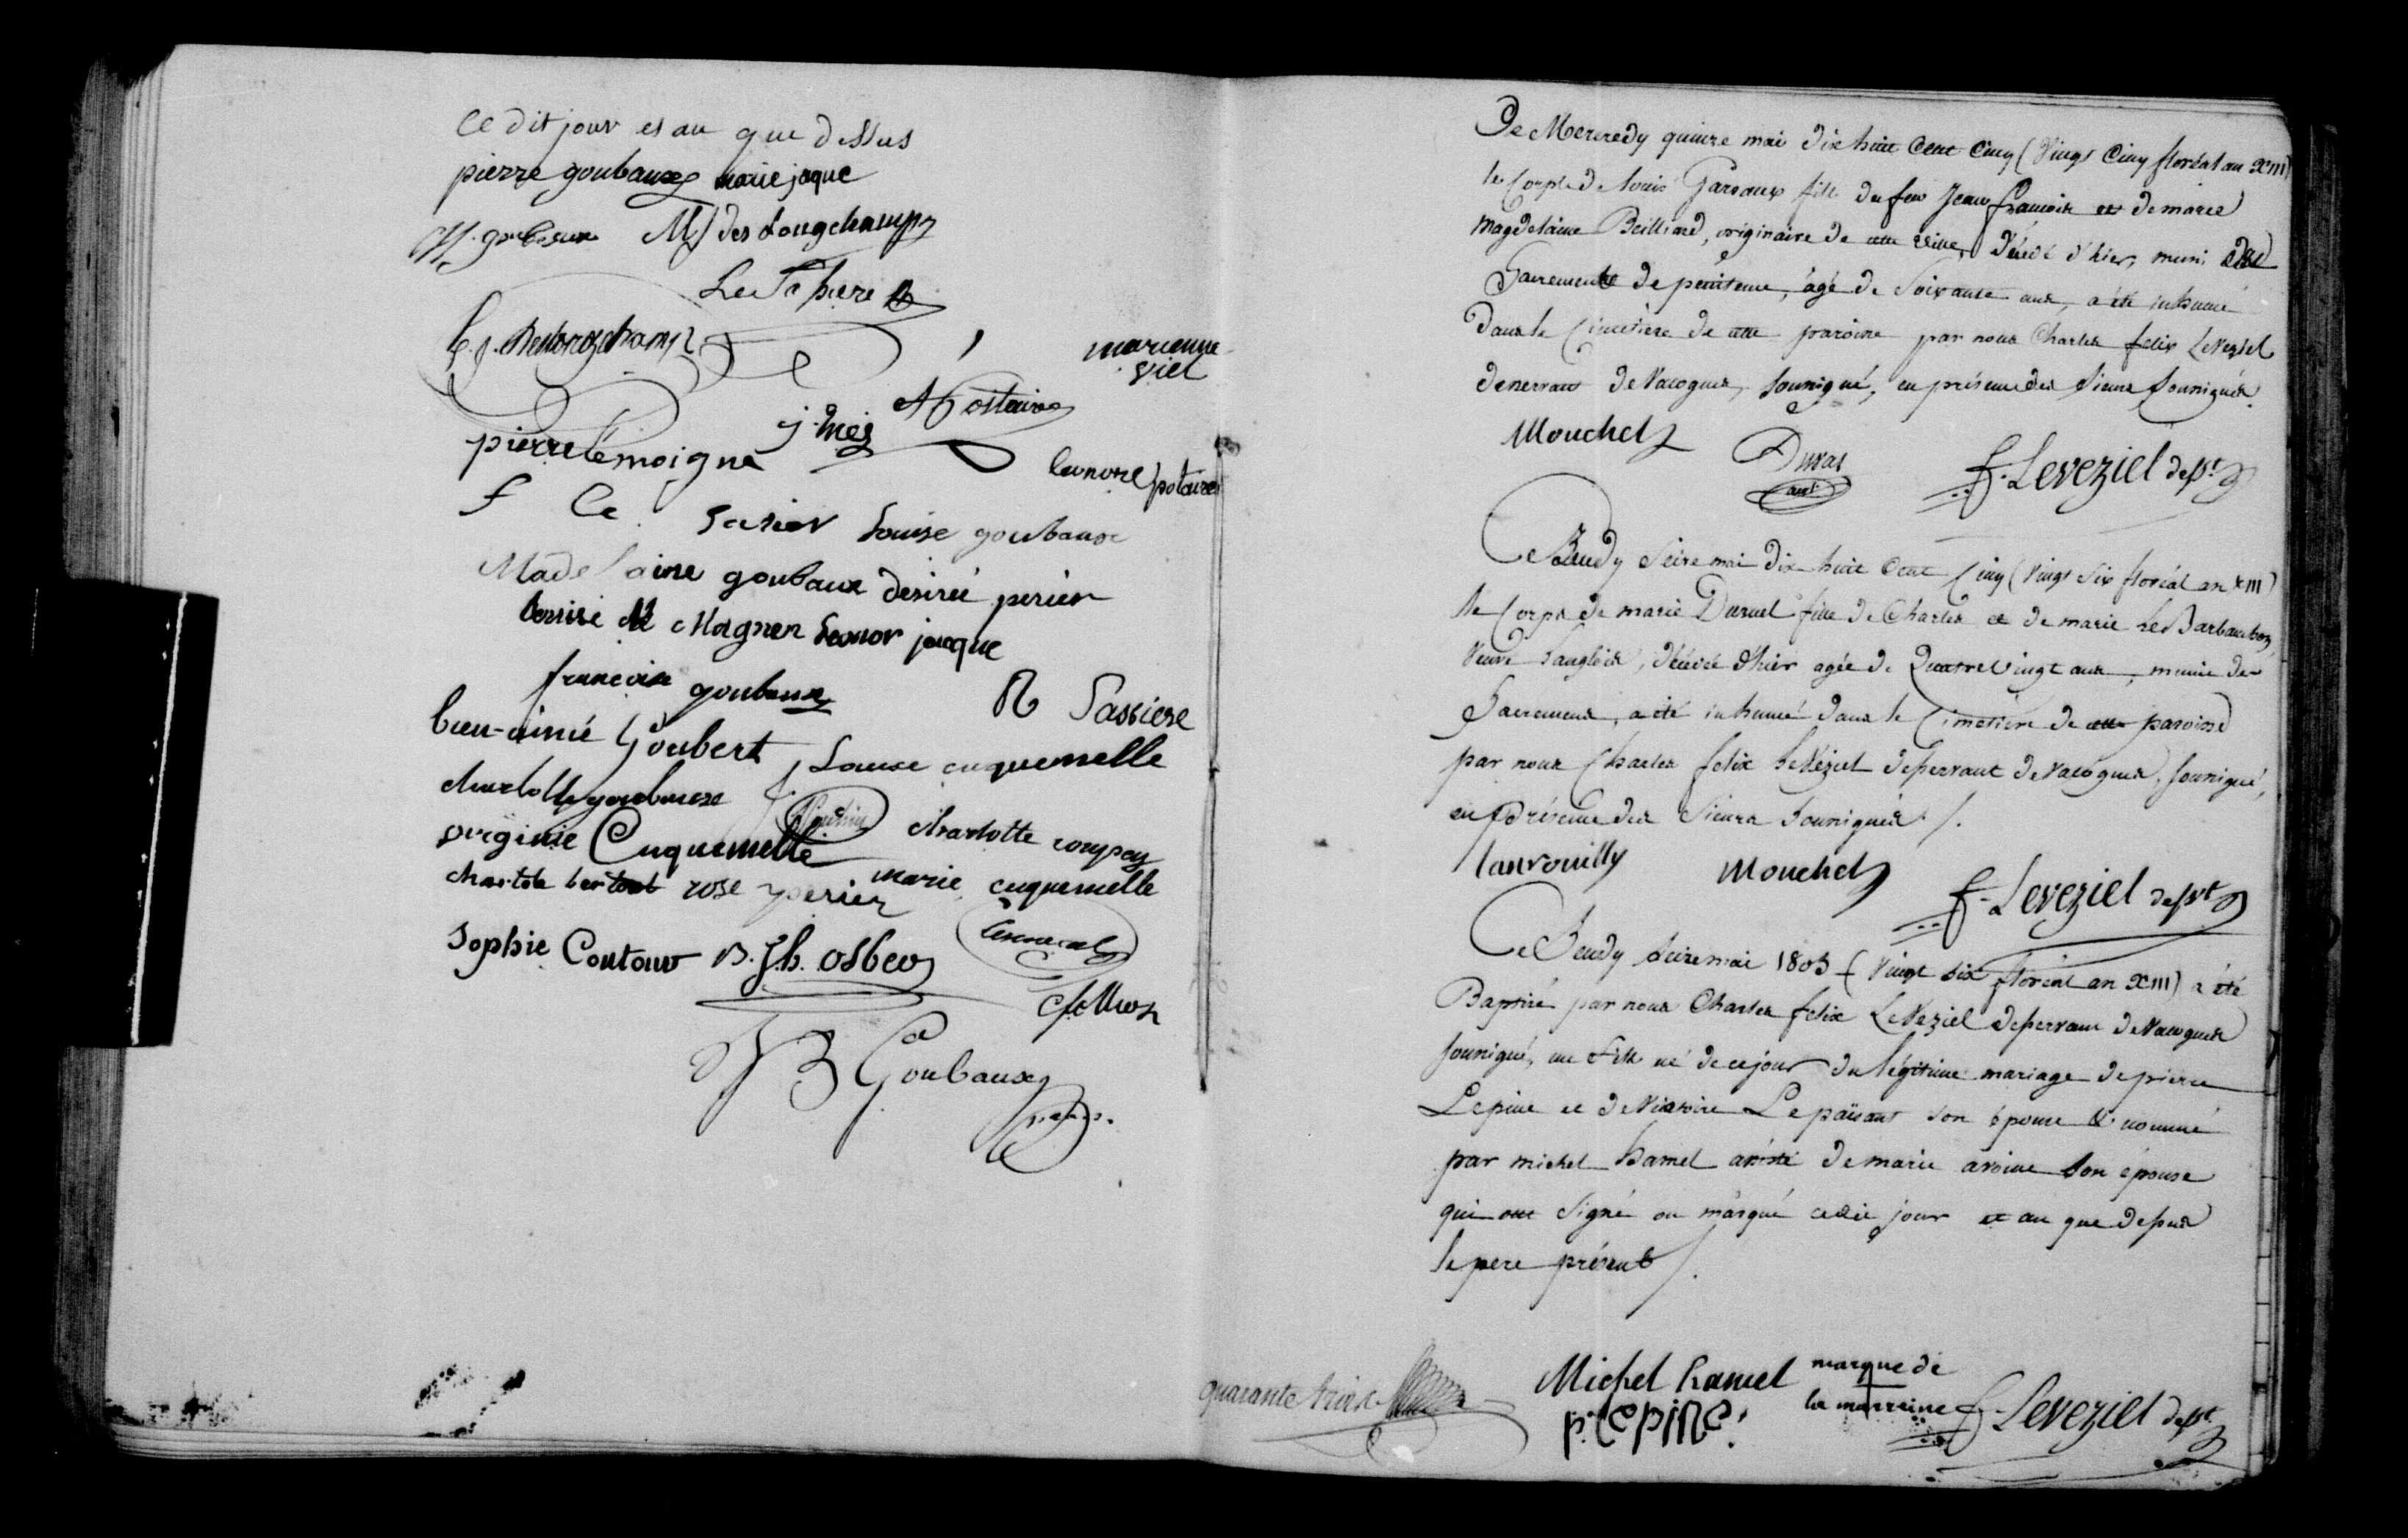 Ce dit jour et an que dessus
pierre goubaux marie jaque
goubeaux MJ des Longchamps
Le Tapiere
C. J. Deslongchamps
marienne
viel
j. mes A Postaire
pierre lemoigne
leonore postaire
f le Louise goubaux
Madelaine goubaux desirée perier
Magnen Leonor jacque
francoise goubaux
R Passiere
bien-aimé Goubert
Louise cuquemelle
charlotte goubaux
charlotte
virginie Cuquemelle
marie cuquemelle
rose perier
Sophie Coutour B. Jh. osber
B Goubaux
Ce Mercredy quinze mai dix huit Cent Cinq (Vingt Cinq floréal an XIII)
le Corps de Louis Garsaux fils de feu Jean francois et de marie
Magdelaine Beilliard, originaire de cette ville, décédé d'hier, muni du
Sacrement de penitence, âgé de Soixante ans, a été inhumé
dans le Cimetière de cette paroisse par nous Charles felix LeVeziel
desservant de Vacognes, soussigné, en présence des Sieurs soussignés.
Mouchel
Duval
F. Leveziel desst
Ce Jeudy Seize mai dix huit Cent Cinq (Vingt Six floréal an XIII)
le Corps de marie Duruel fille de Charles et de marie Le Barbanchon,
Veuve Langlois, décédée d'hier agée de Quatre Vingt ans, munie des
Sacremens, a été inhumé dans le Cimetière de cette paroisse
par nous Charles felix LeVéziel desservant de Vacognes, soussigné,
en Présence des Sieurs soussignés /.
Lanrouilly Mouchel
F. Leveziel desst
Ce Jeudy Seize mai 1805 (Vingt Six floréal an XIII) a été
Baptisé par nous Charles felix LeVeziel desservant de Vacognes
soussigné, un fils né de ce jour du légitime mariage de pierre
Lepine et de Victoire Lepaisant son épouse & nommé
par michel hamel assisté de marie avoine son épouse
qui ont signé ou marqué cedit jour et an que dessus
le pere présent /.
quarante trois
Michel hamel marque de
la marreine
p. Lepine
F. Leveziel desst